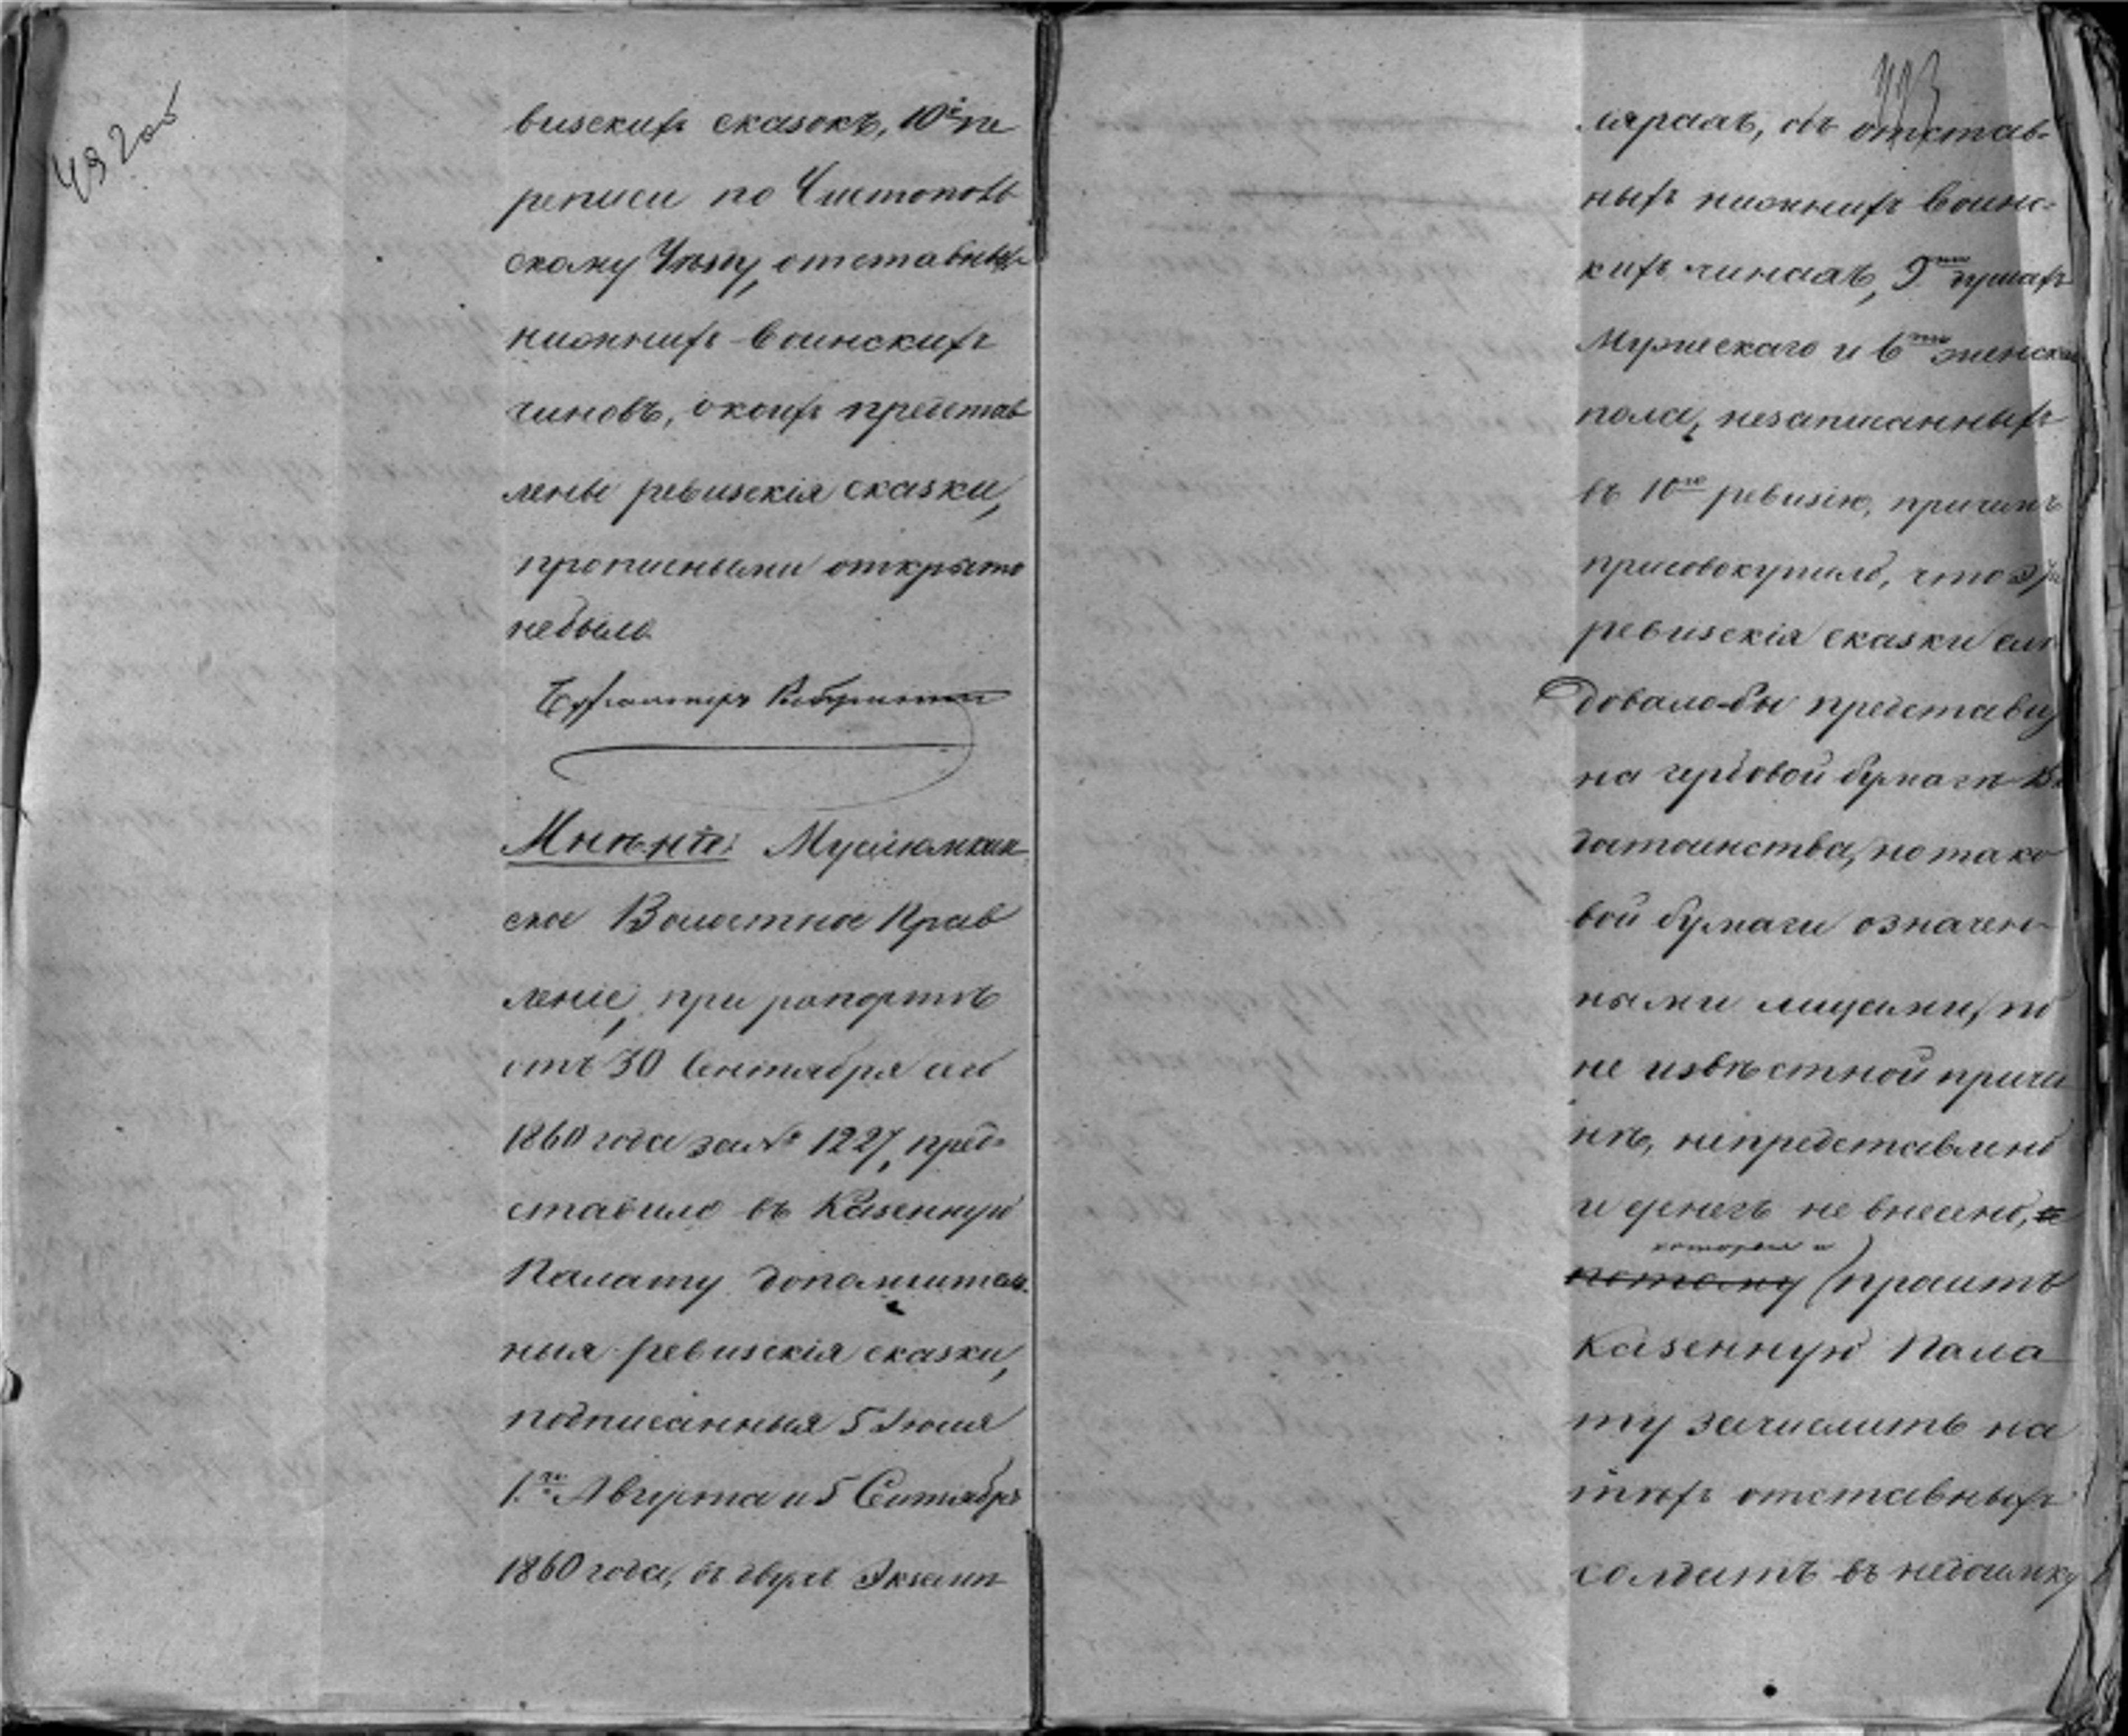 492 об
визскихъ сказокъ, 10й пе
реписи по Чистополь
скому Уѣзду, отставныхъ
нижнихъ воинскихъ
чиновъ, о коихъ представ
лены ревизскія сказки,
прописными открыто
небыло.
Бухгалтеръ
Мнѣніе: Муслюмкин
ское Волостное Прав
леніе, при рапортѣ
отъ 30 Сентября сего
1860 года за № 1227, пред=
ставило въ Казенную
Палату дополнитель
ныя ревизскія сказки,
подписанныя 5 Іюля
1го Августа и 5 Сентября
1860 года, въ двухъ Экзем
493
плярахъ, объ отстав=
ныхъ нижнихъ воинс=
кихъ чинахъ, 9ти душахъ
Мужескаго и 6ти женска
пола, незаписанныхъ
въ 10ю ревизію, причемъ
присовокупило, что эти
ревизскія сказки слѣ
довало-бы представить
на гербовой бумагѣ
достоинства, но тако
вой бумаги означен
ными лицами, по
не извѣстной причи
нѣ, непредставлено
и денегъ не внесено, и
которыя и
потому (проситъ
Казенную Пала
ту зачислить на
тѣхъ отставныхъ
солдатъ въ недоимку